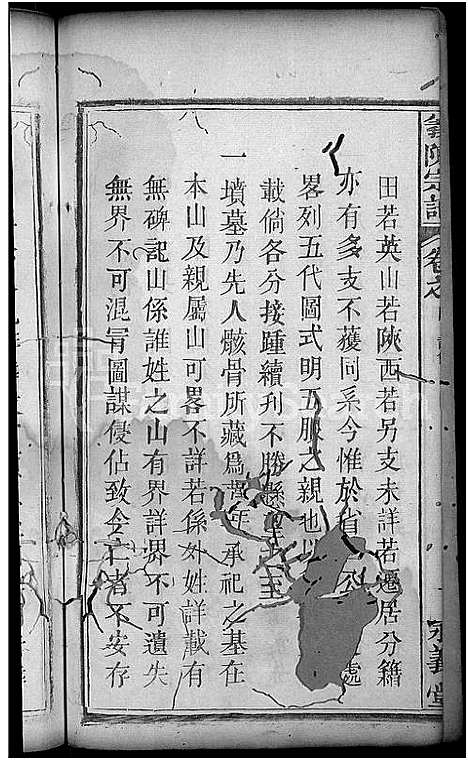 義陳宗譜 卷之
田若英山若陝西若另支未詳若遷居分籍
亦有多支不獲同系今惟於省 公 處
畧列五代圖式明五服之親也以
載倘各分接踵續刊不勝懸望之至
一墳墓乃先人骸骨所藏爲萬年承祀之基在
本山及親屬山可畧不詳若係外姓詳載有
無碑記山係誰姓之山有界詳界不可遺失
無界不可混冐圖謀侵佔致令亡者不安存
宗義堂